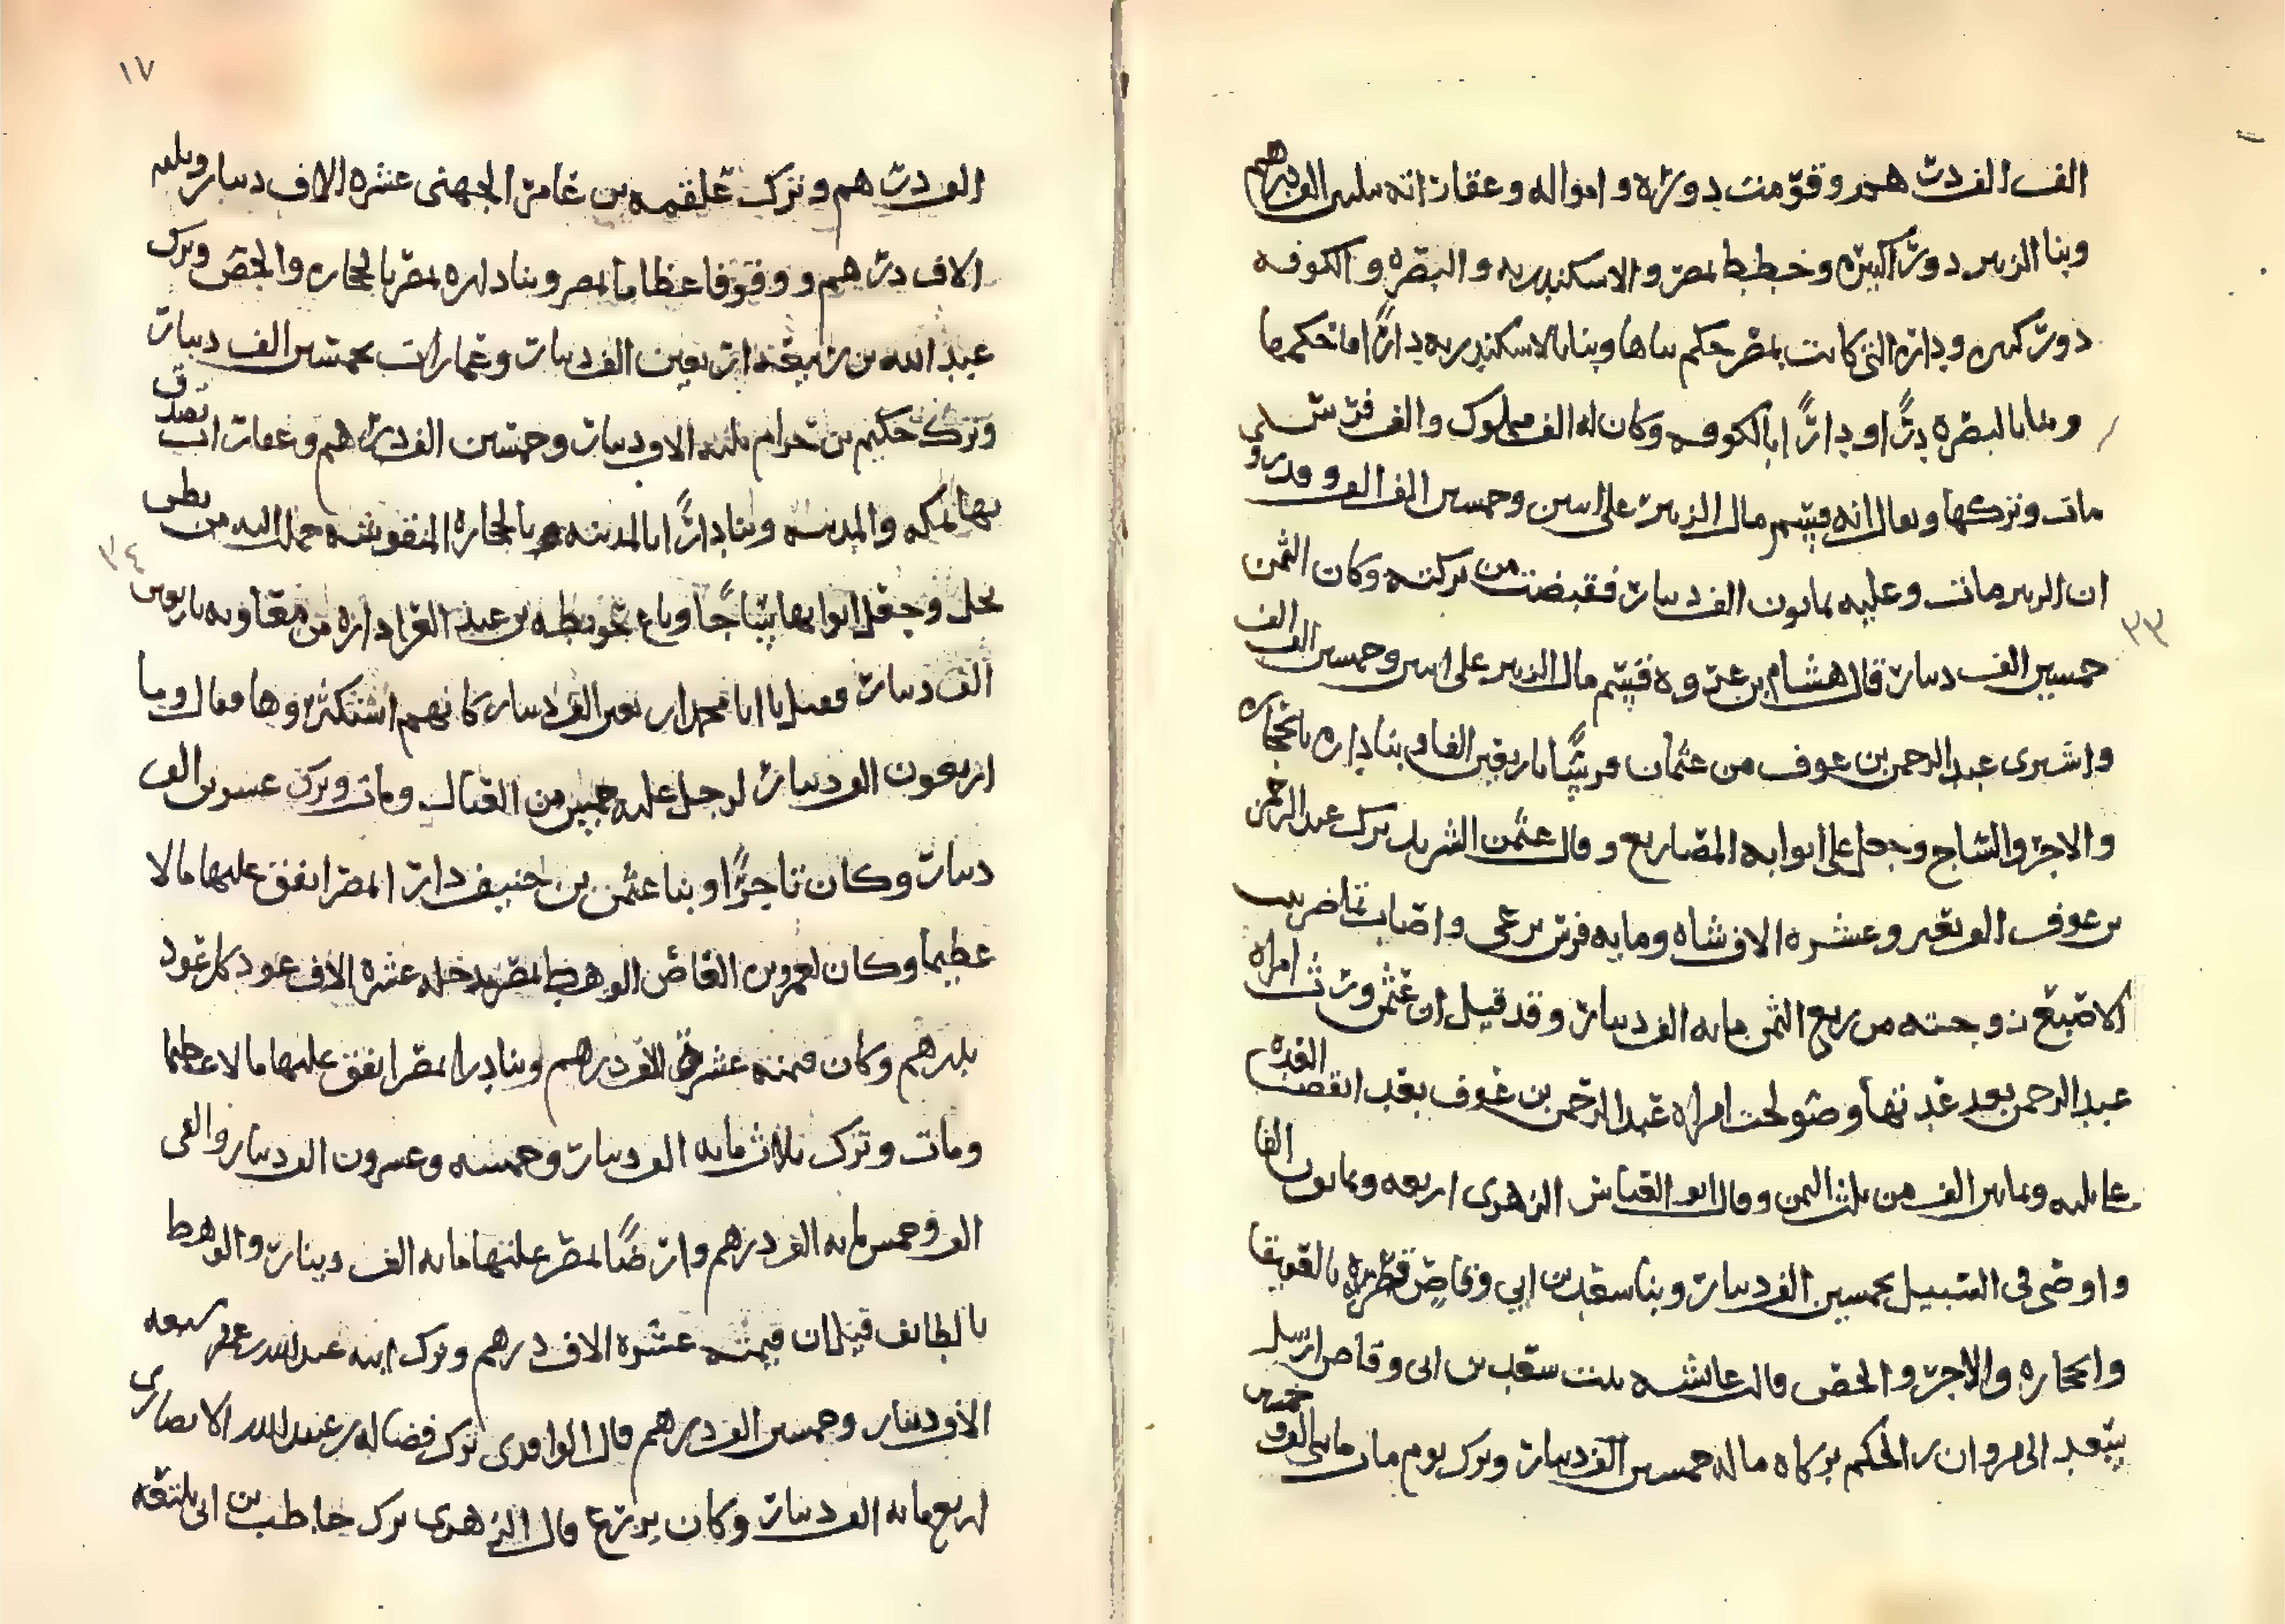 الف الف درهم وقومت دوره وامواله وعقاراته بثلثين الف درهم
وبنا الزبير دورا كثيره وخطط بمصر والاسكندريه والبصره والكوفه
دور كثيره وداره التي كانت بمصر حكم بناها وبنا بالاسكندريه دارا
وبنا بالبصره دارا ودارا بالكوفه وكان له الف مملوك والف فرس
مات وتركها ويقال انه قسم مال الزبير على اثنين وخمسين الف الف وقد روي
ان الزبير مات وعليه ثمانون الف دينار فقبضت من تركته وكان الثمن
خمسين الف دينار قال هشام بن عروه قسم مال الزبير على اثنين وخمسين الف الف
واشترى عبد الرحمن بن عوف من عثمان باربعين الفا وبنا داره بالحجاره
والاجر والساج وجعل على ابوابه المصاريع وقال عثمن الشريد ترك عبد الرحمن
بن عوف الف بعير وعشره الاف شاه ومايه فرس ترعى واصابت تماضر بنت
الاصبغ زوجته من ربع الثمن مايه الف دينار وقد قيل ان عثمن ورث امراه
عبد الرحمن بعد عدتها وصولحت امراه عبد الرحمن بن عوف بعد انقضا العده
على ثلثه وثمانين الف من ثلث الثمن وقال ابو العباس الزهري اربعه وثمانون الفا
واوصى في السبيل بخمسين الف دينار وبنا سعد بن ابي وقاص قصره بالعقيق
والحجاره والاجر والجص قالت عايشه بنت سعد بن ابي وقاص ارسل
سعد الى مروان بن الحكم بزكاه ماله خمسين الف دينار وترك يوم مات مايتي الف وخمسين
٣٣
١٧
الف درهم وترك علقمه بن عامر الجهني عشره الاف دينار وثلثه
الاف درهم ووقوفا عظاما بمصر وبنا داره بمصر بالحجاره والجص وترك
عبد الله بن ربيعه اربعين الف دينار وعمارات بخمسين الف دينار
وترك حكيم بن حزام ثلثه الاف دينار وخمسين الف درهم وعقارات تصدق
بها بمكه والمدينه وبنا دارا بالمدينه بالحجاره المنقوشه حمل اليه من بطن
نخل وجعل ابوابها ساجا وباع حويطب بن عبد العزا داره من معاويه باربعين
الف دينار فقيل يا ابا محمد اربعين الف دينار كانهم استكثروها فقال وما
اربعون الف دينار لرجل عليه خمس من العيال ومات وترك عشرين الف
دينار وكان تاجرا وبنا عثمن بن حنيف دارا بمصر انفق عليها مالا
عظيما وكان لعمرو بن العاص الوهط بمصر يدخله عشره الاف عود كل عود
بدرهم وكان قيمته عشره الاف درهم وبنا دارا بمصر انفق عليها مالا عظيما
ومات وترك ثلاث مايه الف دينار وخمسه وعشرون الف دينار والفي
الف وخمس مايه الف درهم وارضا بمصر غلتها مايه الف دينار والوهط
بالطايف قيل ان قيمته عشره الاف درهم وترك ابنه عبد الله بن عمرو سبعه
الاف دينار وخمسين الف درهم قال الواقدي ترك فضاله بن عبيد الله الانصاري
اربع مايه الف دينار وكان يزرع قال الزهري ترك حاطب بن ابي بلتعه
٣٤